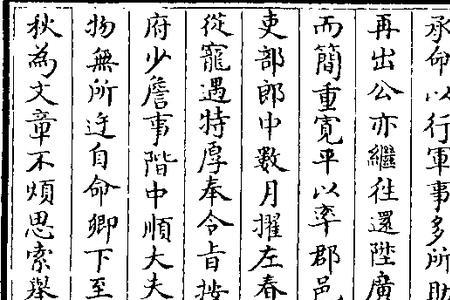 承命以行軍事多所助
再出公亦繼往還陛廣
而簡重寬平以率郡邑
吏部郎中數月擢左春
從寵遇特厚奉令旨按
府少詹事階中順大夫
物無所迕自命卿下至
秋為文章不煩思索舉